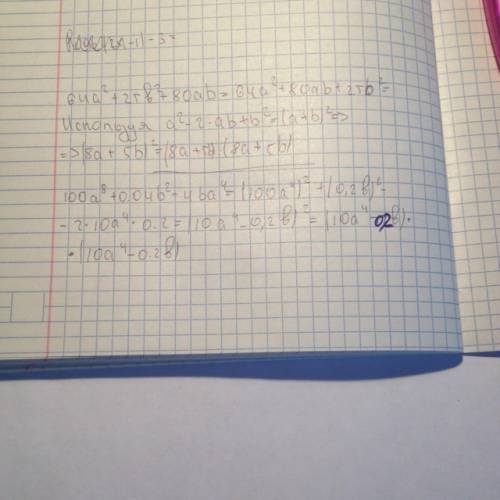 64a² + 25b² + 80ab = 64a² + 80ab + 25b² =
Используя a² - 2·ab + b² = (a + b)² =>
=> (8a + 5b)² = (8a + 5b) (8a + 5b)
100a⁸ + 0.04b² - 4ba⁴ = (100a⁴)² + (0,2b)² -
- 2·10a⁴ · 0.2 = (10a⁴ - 0,2b)² = (10a⁴ - 0,2b) ·
· (10a⁴ - 0.2b)